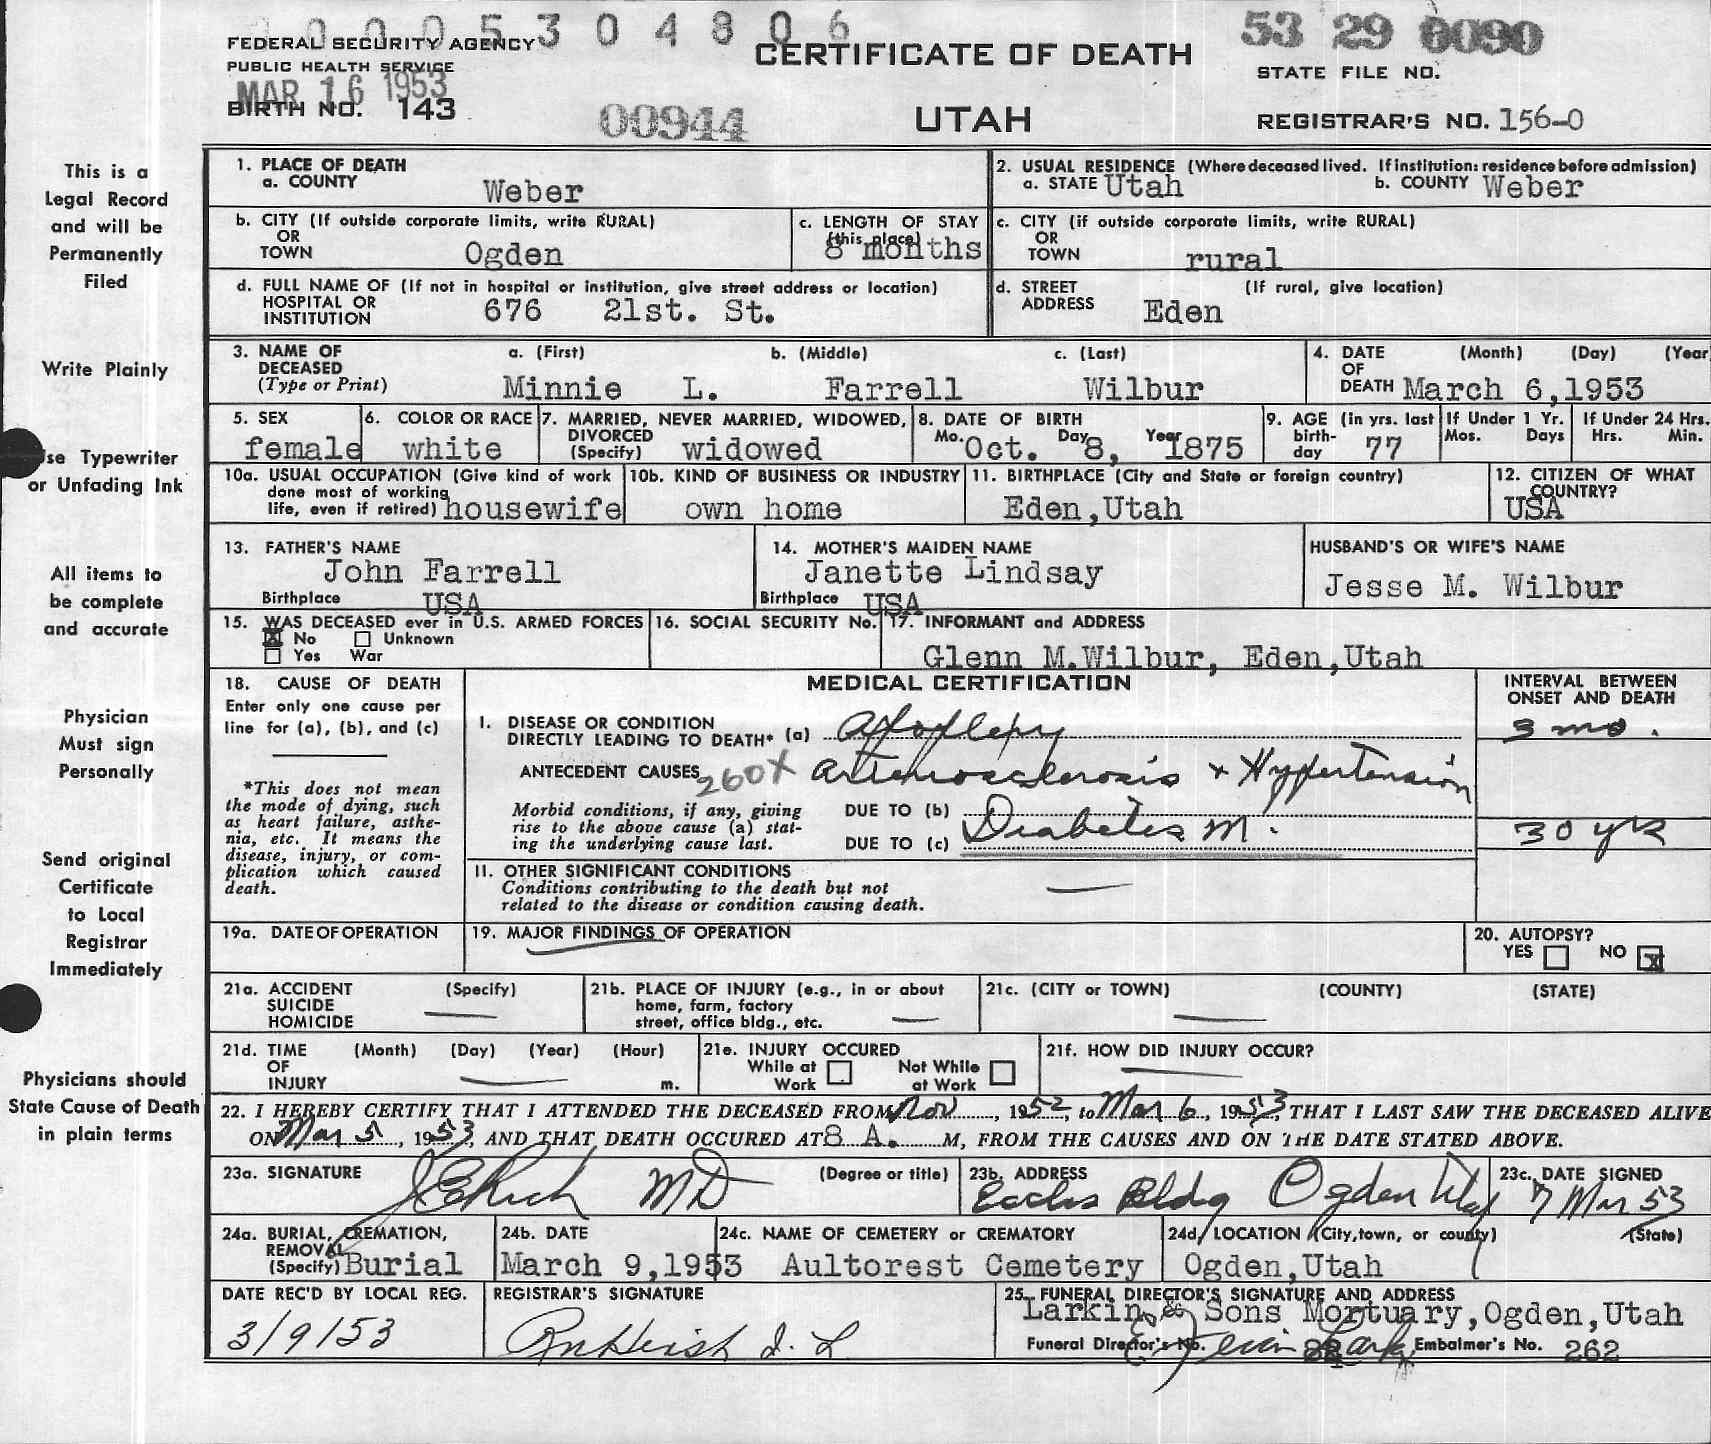 0005304806
FEDERAL SECURITY AGENCY
PUBLIC HEALTH SERVICE
MAR 16 1953
BIRTH NO. 143
00944
CERTIFICATE OF DEATH
UTAH
53 29 0090
STATE FILE NO.
REGISTRAR'S NO. 156-0
This is a
Legal Record
and will be
Permanently
Filed
Write Plainly
Use Typewriter
or Unfading Ink
All items to
be complete
and accurate
Physician
Must sign
Personally
Send original
Certificate
to Local
Registrar
Immediately
Physicians should
State Cause of Death
in plain terms
1. PLACE OF DEATH
a. COUNTY Weber
2. USUAL RESIDENCE (Where deceased lived. If institution: residence before admission)
a. STATE Utah b. COUNTY Weber
b. CITY (If outside corporate limits, write RURAL)
OR
TOWN Ogden
c. LENGTH OF STAY
(this place)
8 months
c. CITY (if outside corporate limits, write RURAL)
OR
TOWN rural
d. FULL NAME OF (If not in hospital or institution, give street address or location)
HOSPITAL OR
INSTITUTION 676 21st. St.
d. STREET (If rural, give location)
ADDRESS Eden
3. NAME OF a. (First) b. (Middle) c. (Last)
DECEASED
(Type or Print) Minnie L. Farrell Wilbur
4. DATE (Month) (Day) (Year
OF
DEATH March 6,1953
5. SEX
female
6. COLOR OR RACE
white
7. MARRIED, NEVER MARRIED, WIDOWED,
DIVORCED
(Specify) widowed
8. DATE OF BIRTH
Mo. Oct. Day 8, Year 1875
9. AGE (in yrs. last
birth-
day 77
If Under 1 Yr.
Mos. Days
If Under 24 Hrs.
Hrs. Min.
10a. USUAL OCCUPATION (Give kind of work
done most of working
life, even if retired) housewife
10b. KIND OF BUSINESS OR INDUSTRY
own home
11. BIRTHPLACE (City and State or foreign country)
Eden,Utah
12. CITIZEN OF WHAT
COUNTRY?
USA
13. FATHER'S NAME
John Farrell
Birthplace USA
14. MOTHER'S MAIDEN NAME
Janette Lindsay
Birthplace USA
HUSBAND'S OR WIFE'S NAME
Jesse M. Wilbur
15. WAS DECEASED ever in U.S. ARMED FORCES
X No Unknown
Yes War
16. SOCIAL SECURITY No.
17. INFORMANT and ADDRESS
Glenn M.Wilbur, Eden,Utah
18. CAUSE OF DEATH
Enter only one cause per
line for (a), (b), and (c)
*This does not mean
the mode of dying, such
as heart failure, asthe-
nia, etc. It means the
disease, injury, or com-
plication which caused
death.
MEDICAL CERTIFICATION
INTERVAL BETWEEN
ONSET AND DEATH
I. DISEASE OR CONDITION
DIRECTLY LEADING TO DEATH* (a) Apoplexy 3 mo.
ANTECEDENT CAUSES 260X Arteriosclerosis + Hypertension
Morbid conditions, if any, giving
rise to the above cause (a) stat-
ing the underlying cause last.
DUE TO (b)
DUE TO (c) Diabetes M. 30 yrs
II. OTHER SIGNIFICANT CONDITIONS
Conditions contributing to the death but not
related to the disease or condition causing death.
19a. DATE OF OPERATION
19. MAJOR FINDINGS OF OPERATION
20. AUTOPSY?
YES NO X
21a. ACCIDENT (Specify)
SUICIDE
HOMICIDE
21b. PLACE OF INJURY (e.g., in or about
home, farm, factory
street, office bldg., etc.
21c. (CITY or TOWN) (COUNTY) (STATE)
21d. TIME (Month) (Day) (Year) (Hour)
OF
INJURY m.
21e. INJURY OCCURED
While at Work Not While at Work
21f. HOW DID INJURY OCCUR?
22. I HEREBY CERTIFY THAT I ATTENDED THE DECEASED FROM Nov, 1952, to Mar 6, 1953, THAT I LAST SAW THE DECEASED ALIVE
ON Mar 5, 1953, AND THAT DEATH OCCURED AT 8 A. M, FROM THE CAUSES AND ON THE DATE STATED ABOVE.
23a. SIGNATURE (Degree or title)
J E Rich MD
23b. ADDRESS
Eccles Bldg Ogden Utah
23c. DATE SIGNED
7 Mar 53
24a. BURIAL, CREMATION,
REMOVAL
(Specify) Burial
24b. DATE
March 9,1953
24c. NAME OF CEMETERY or CREMATORY
Aultorest Cemetery
24d. LOCATION (City, town, or county) (State)
Ogden,Utah
DATE REC'D BY LOCAL REG.
3/9/53
REGISTRAR'S SIGNATURE
25. FUNERAL DIRECTOR'S SIGNATURE AND ADDRESS
Larkin & Sons Mortuary,Ogden,Utah
Funeral Director's No. Embalmer's No. 262